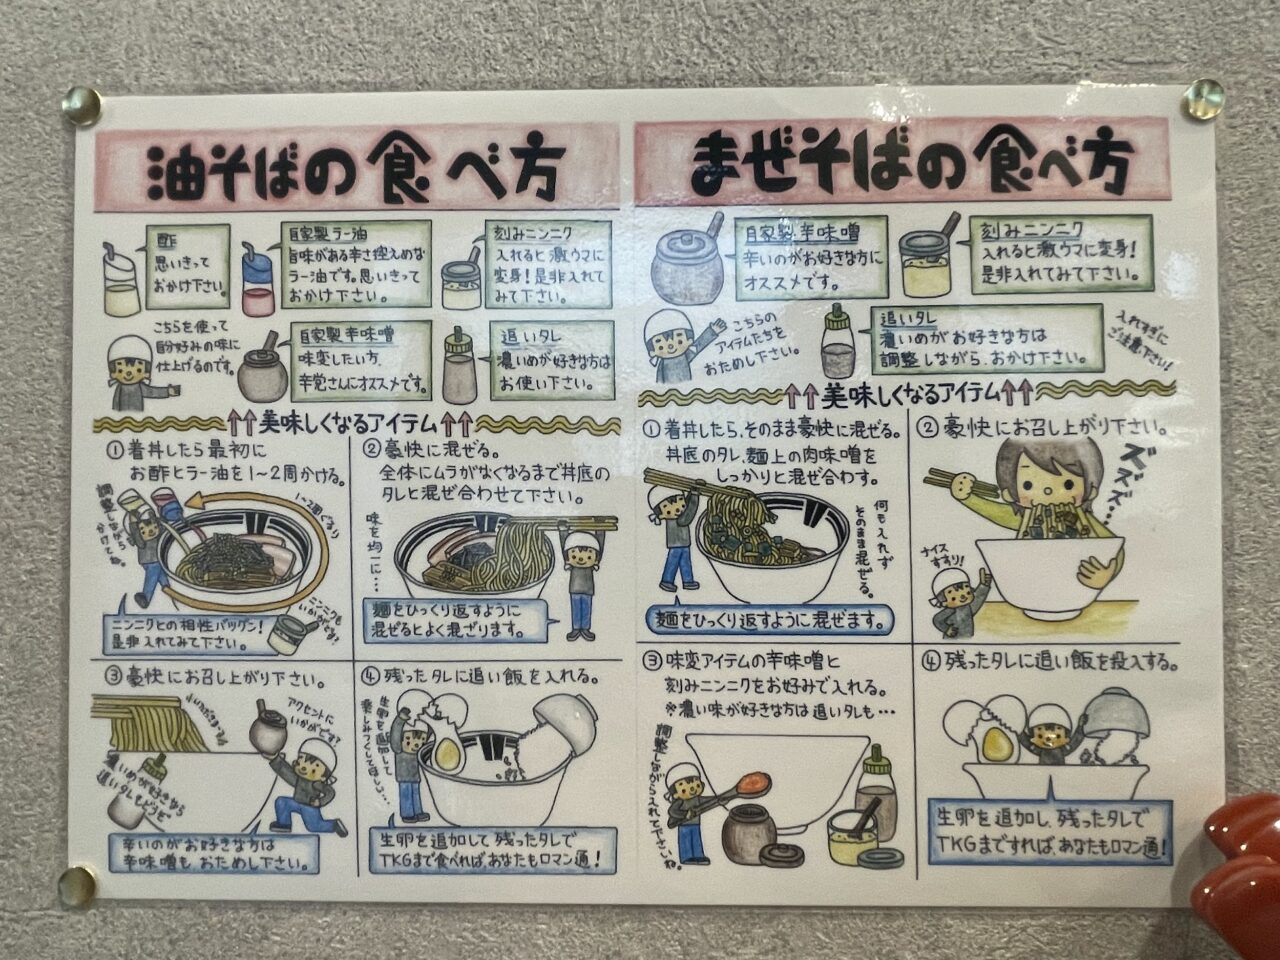 油そばの食べ方
酢
思いきって
おかけ下さい。
自家製ラー油
旨味がある辛さ控えめな
ラー油です。思いきって
おかけ下さい。
刻みニンニク
入れると激ウマに
変身!是非入れて
みて下さい。
こちらを使って
自分好みの味に
仕上げるのです。
自家製辛味噌
味変したい方、
辛党さんにオススメです。
追いタレ
濃いめが好きな方は
お使い下さい。
↑↑美味しくなるアイテム↑↑
①着丼したら最初に
お酢とラー油を1~2周かける。
調整しながら
かけてね。
1~2周ぐるり
ニンニクも
いかがです?
ニンニクとの相性バツグン!
是非入れてみて下さい。
②豪快に混ぜる。
全体にムラがなくなるまで丼底の
タレと混ぜ合わせて下さい。
味を均一に…
麺をひっくり返すように
混ぜるとよく混ざります。
③豪快にお召し上がり下さい。
アクセントに
いかがです?
濃いめが好きなら
追いタレもどうぞ
辛いのがお好きな方は
辛味噌も、おためし下さい。
④残ったタレに追い飯を入れる。
生卵を追加して
楽しみつくしてほしい…
生卵を追加して残ったタレで
TKGまで食べれば、あなたもロマン通!
まぜそばの食べ方
自家製辛味噌
辛いのがお好きな方に
オススメです。
刻みニンニク
入れると激ウマに変身!
是非入れてみて下さい。
こちらの
アイテムたちを
おためし下さい。
追いタレ
濃いめがお好きな方は
調整しながら、おかけ下さい。
入れすぎに
ご注意下さい!
↑↑美味しくなるアイテム↑↑
①着丼したら、そのまま豪快に混ぜる。
丼底のタレ、麺上の肉味噌を
しっかりと混ぜ合わす。
何も入れず
そのまま混ぜる。
麺をひっくり返すように混ぜます。
②豪快にお召し上がり下さい。
ズズズ…
ナイス
すすり!
③味変アイテムの辛味噌と
刻みニンニクをお好みで入れる。
※濃い味が好きな方は追いタレも…
調整しながら入れて下さいね。
④残ったタレに追い飯を投入する。
生卵を追加し、残ったタレで
TKGまですれば、あなたもロマン通!